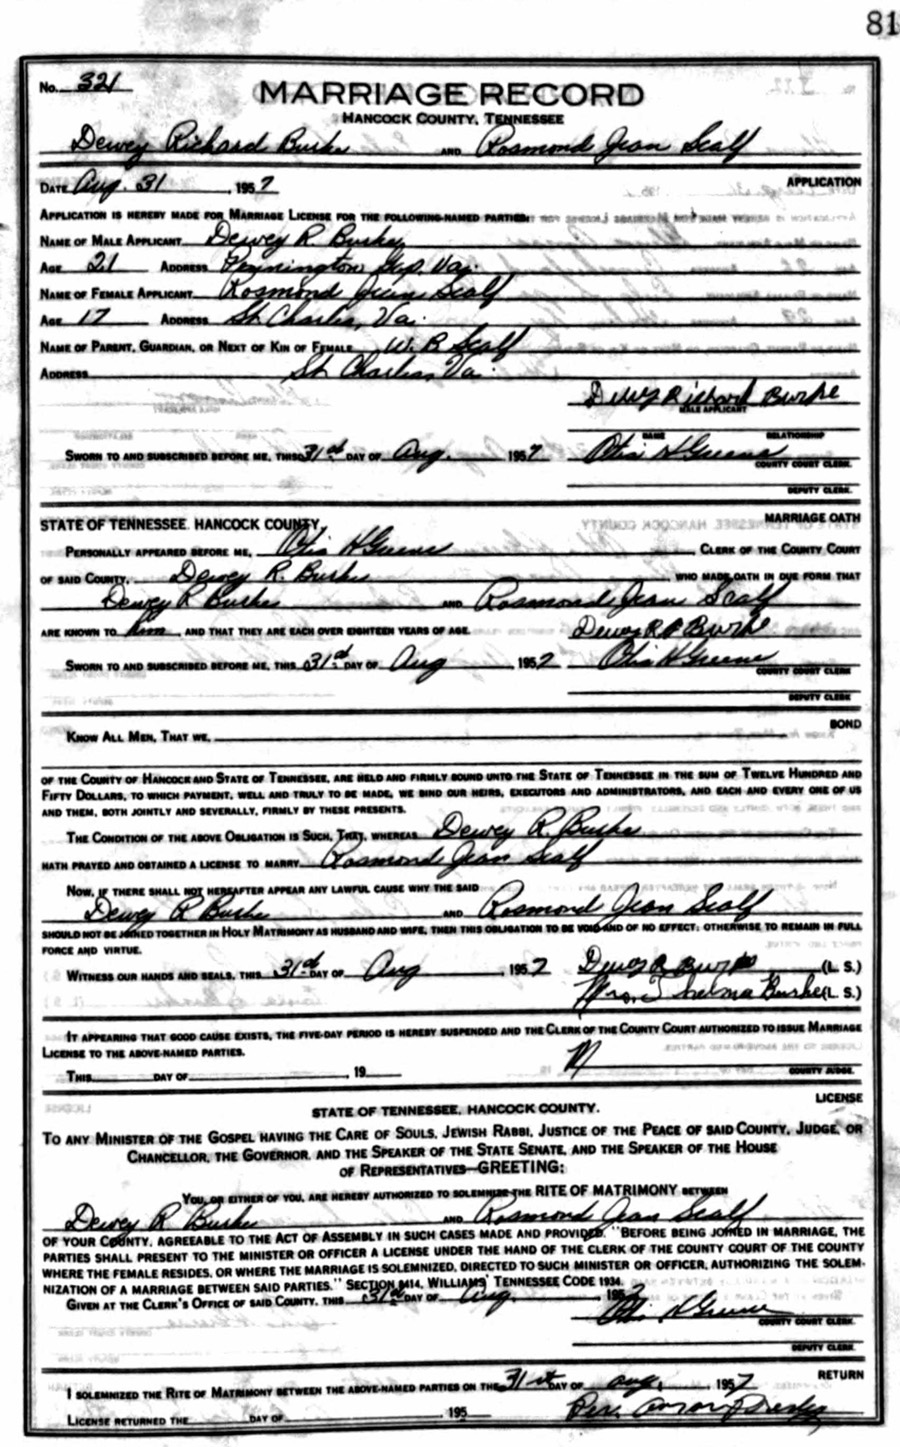 81
No. 321
MARRIAGE RECORD
HANCOCK COUNTY, TENNESSEE
Dewey Richard Burke AND Rosmond Jean Scalf
DATE Aug. 31, 1957 APPLICATION
APPLICATION IS HEREBY MADE FOR MARRIAGE LICENSE FOR THE FOLLOWING-NAMED PARTIES:
NAME OF MALE APPLICANT Dewey R. Burke
AGE 21 ADDRESS Pennington Gap, Va.
NAME OF FEMALE APPLICANT Rosmond Jean Scalf
AGE 17 ADDRESS St. Charles, Va.
NAME OF PARENT, GUARDIAN, OR NEXT OF KIN OF FEMALE W. R. Scalf
ADDRESS St. Charles, Va.
Dewey Richard Burke
MALE APPLICANT
NAME RELATIONSHIP
SWORN TO AND SUBSCRIBED BEFORE ME, THIS 31st DAY OF Aug. 1957 Otis H Greene
COUNTY COURT CLERK.
DEPUTY CLERK.
STATE OF TENNESSEE, HANCOCK COUNTY, MARRIAGE OATH
PERSONALLY APPEARED BEFORE ME, Otis H Greene, CLERK OF THE COUNTY COURT
OF SAID COUNTY, Dewey R. Burke, WHO MADE OATH IN DUE FORM THAT
Dewey R Burke AND Rosmond Jean Scalf
ARE KNOWN TO him, AND THAT THEY ARE EACH OVER EIGHTEEN YEARS OF AGE. Dewey R Burke
SWORN TO AND SUBSCRIBED BEFORE ME, THIS 31st DAY OF Aug 1957 Otis H Greene
COUNTY COURT CLERK
DEPUTY CLERK
BOND
KNOW ALL MEN, THAT WE,
OF THE COUNTY OF HANCOCK AND STATE OF TENNESSEE, ARE HELD AND FIRMLY BOUND UNTO THE STATE OF TENNESSEE IN THE SUM OF TWELVE HUNDRED AND
FIFTY DOLLARS, TO WHICH PAYMENT, WELL AND TRULY TO BE MADE, WE BIND OUR HEIRS, EXECUTORS AND ADMINISTRATORS, AND EACH AND EVERY ONE OF US
AND THEM, BOTH JOINTLY AND SEVERALLY, FIRMLY BY THESE PRESENTS.
THE CONDITION OF THE ABOVE OBLIGATION IS SUCH, THAT, WHEREAS Dewey R. Burke
HATH PRAYED AND OBTAINED A LICENSE TO MARRY Rosmond Jean Scalf
NOW, IF THERE SHALL NOT HEREAFTER APPEAR ANY LAWFUL CAUSE WHY THE SAID
Dewey R Burke AND Rosmond Jean Scalf
SHOULD NOT BE JOINED TOGETHER IN HOLY MATRIMONY AS HUSBAND AND WIFE, THEN THIS OBLIGATION TO BE VOID AND OF NO EFFECT; OTHERWISE TO REMAIN IN FULL
FORCE AND VIRTUE.
WITNESS OUR HANDS AND SEALS, THIS 31st DAY OF Aug, 1957 Dewey R Burke (L. S.)
Mrs. Thelma Burke (L. S.)
IT APPEARING THAT GOOD CAUSE EXISTS, THE FIVE-DAY PERIOD IS HEREBY SUSPENDED AND THE CLERK OF THE COUNTY COURT AUTHORIZED TO ISSUE MARRIAGE
LICENSE TO THE ABOVE-NAMED PARTIES.
THIS DAY OF , 19 COUNTY JUDGE.
LICENSE
STATE OF TENNESSEE, HANCOCK COUNTY.
TO ANY MINISTER OF THE GOSPEL HAVING THE CARE OF SOULS, JEWISH RABBI, JUSTICE OF THE PEACE OF SAID COUNTY, JUDGE, OR
CHANCELLOR, THE GOVERNOR, AND THE SPEAKER OF THE STATE SENATE, AND THE SPEAKER OF THE HOUSE
OF REPRESENTATIVES—GREETING:
YOU, OR EITHER OF YOU, ARE HEREBY AUTHORIZED TO SOLEMNIZE THE RITE OF MATRIMONY BETWEEN
Dewey R. Burke AND Rosmond Jean Scalf
OF YOUR COUNTY, AGREEABLE TO THE ACT OF ASSEMBLY IN SUCH CASES MADE AND PROVIDED. "BEFORE BEING JOINED IN MARRIAGE, THE
PARTIES SHALL PRESENT TO THE MINISTER OR OFFICER A LICENSE UNDER THE HAND OF THE CLERK OF THE COUNTY COURT OF THE COUNTY
WHERE THE FEMALE RESIDES, OR WHERE THE MARRIAGE IS SOLEMNIZED, DIRECTED TO SUCH MINISTER OR OFFICER, AUTHORIZING THE SOLEM-
NIZATION OF A MARRIAGE BETWEEN SAID PARTIES." SECTION 8414, WILLIAMS' TENNESSEE CODE 1934.
GIVEN AT THE CLERK'S OFFICE OF SAID COUNTY, THIS 31st DAY OF Aug. 1957
Otis H Greene
COUNTY COURT CLERK.
DEPUTY CLERK.
RETURN
I SOLEMNIZED THE RITE OF MATRIMONY BETWEEN THE ABOVE-NAMED PARTIES ON THE 31st DAY OF Aug. 1957
LICENSE RETURNED THE DAY OF , 195 Rev.